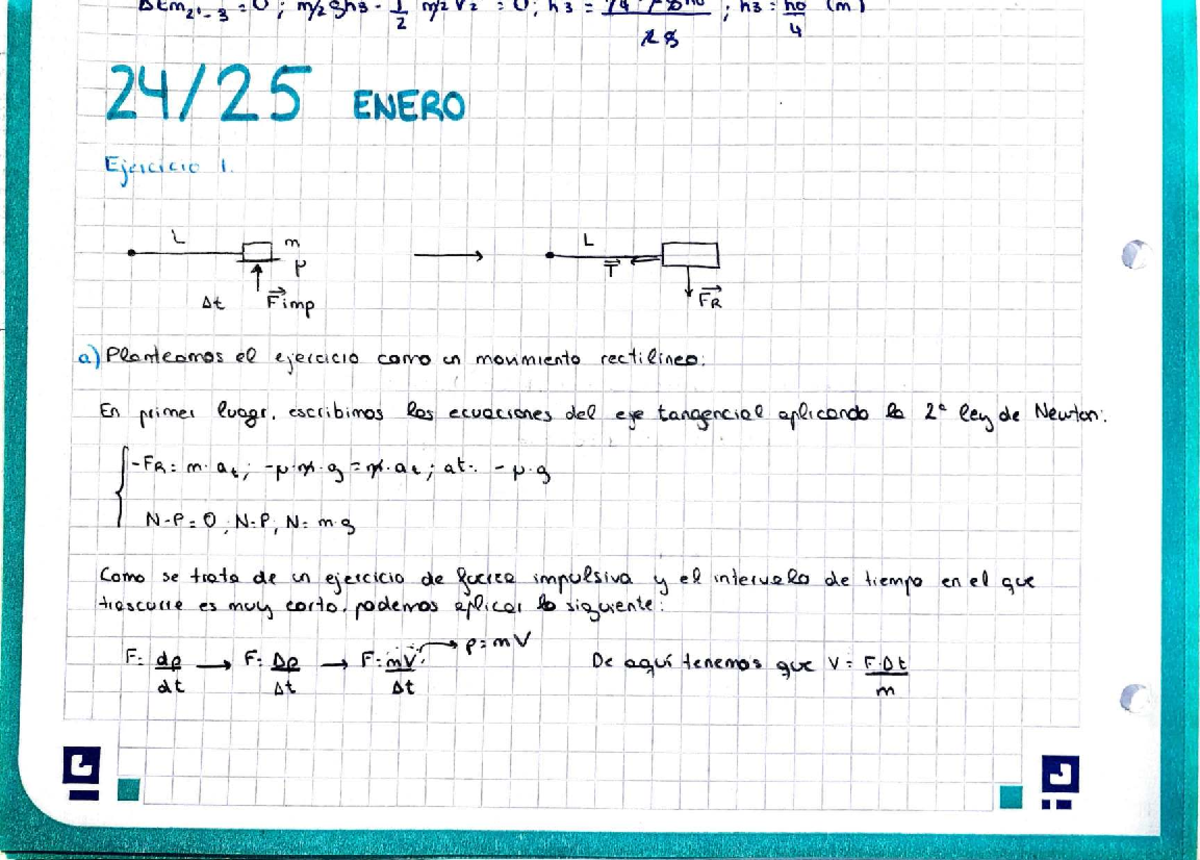 ΔEm₂'₋₃ = 0 ; m/2 g h3 - 1/2 m/2 V₂² = 0 ; h3 = ; h3 = h0/4 (m)
24/25 ENERO
Ejercicio 1.
L m μ L
T⃗
Δt F⃗imp F⃗R
a) Planteamos el ejercicio como un movimiento rectilineo:
En primer luagr, escribimos las ecuaciones del eje tangencial aplicando la 2ª ley de Newton:
-FR = m·at; -μ·m·g = m·at; at = -μ·g
N-P=0; N=P; N=m·g
Como se trata de un ejercicio de fuerza impulsiva y el intervalo de tiempo en el que
trascurre es muy corto, podemos aplicar lo siguiente:
F = dp/dt → F = Δp/Δt → F = mV/Δt → p=mV De aquí tenemos que V = F·Δt/m